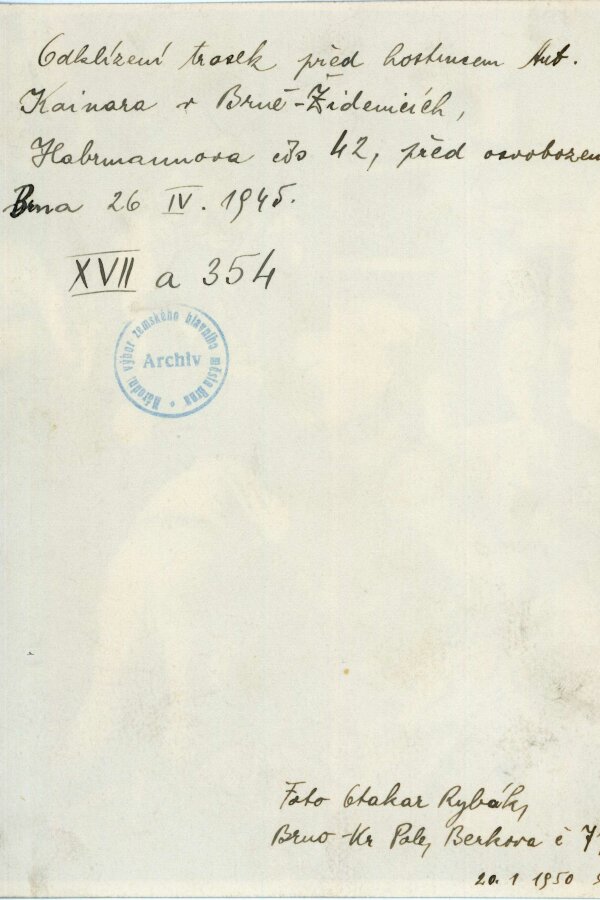 Odklízení trosek před hostincem Ant.
Kainara v Brně-Židenicích,
Habrmannova čís 42, před osvobozen
Brna 26 IV. 1945.
XVII a 354
Národní výbor zemského hlavního města Brna
Archiv
Foto Otakar Rybák,
Brno-Kr Pole, Berkova č 7
20. 1 1950